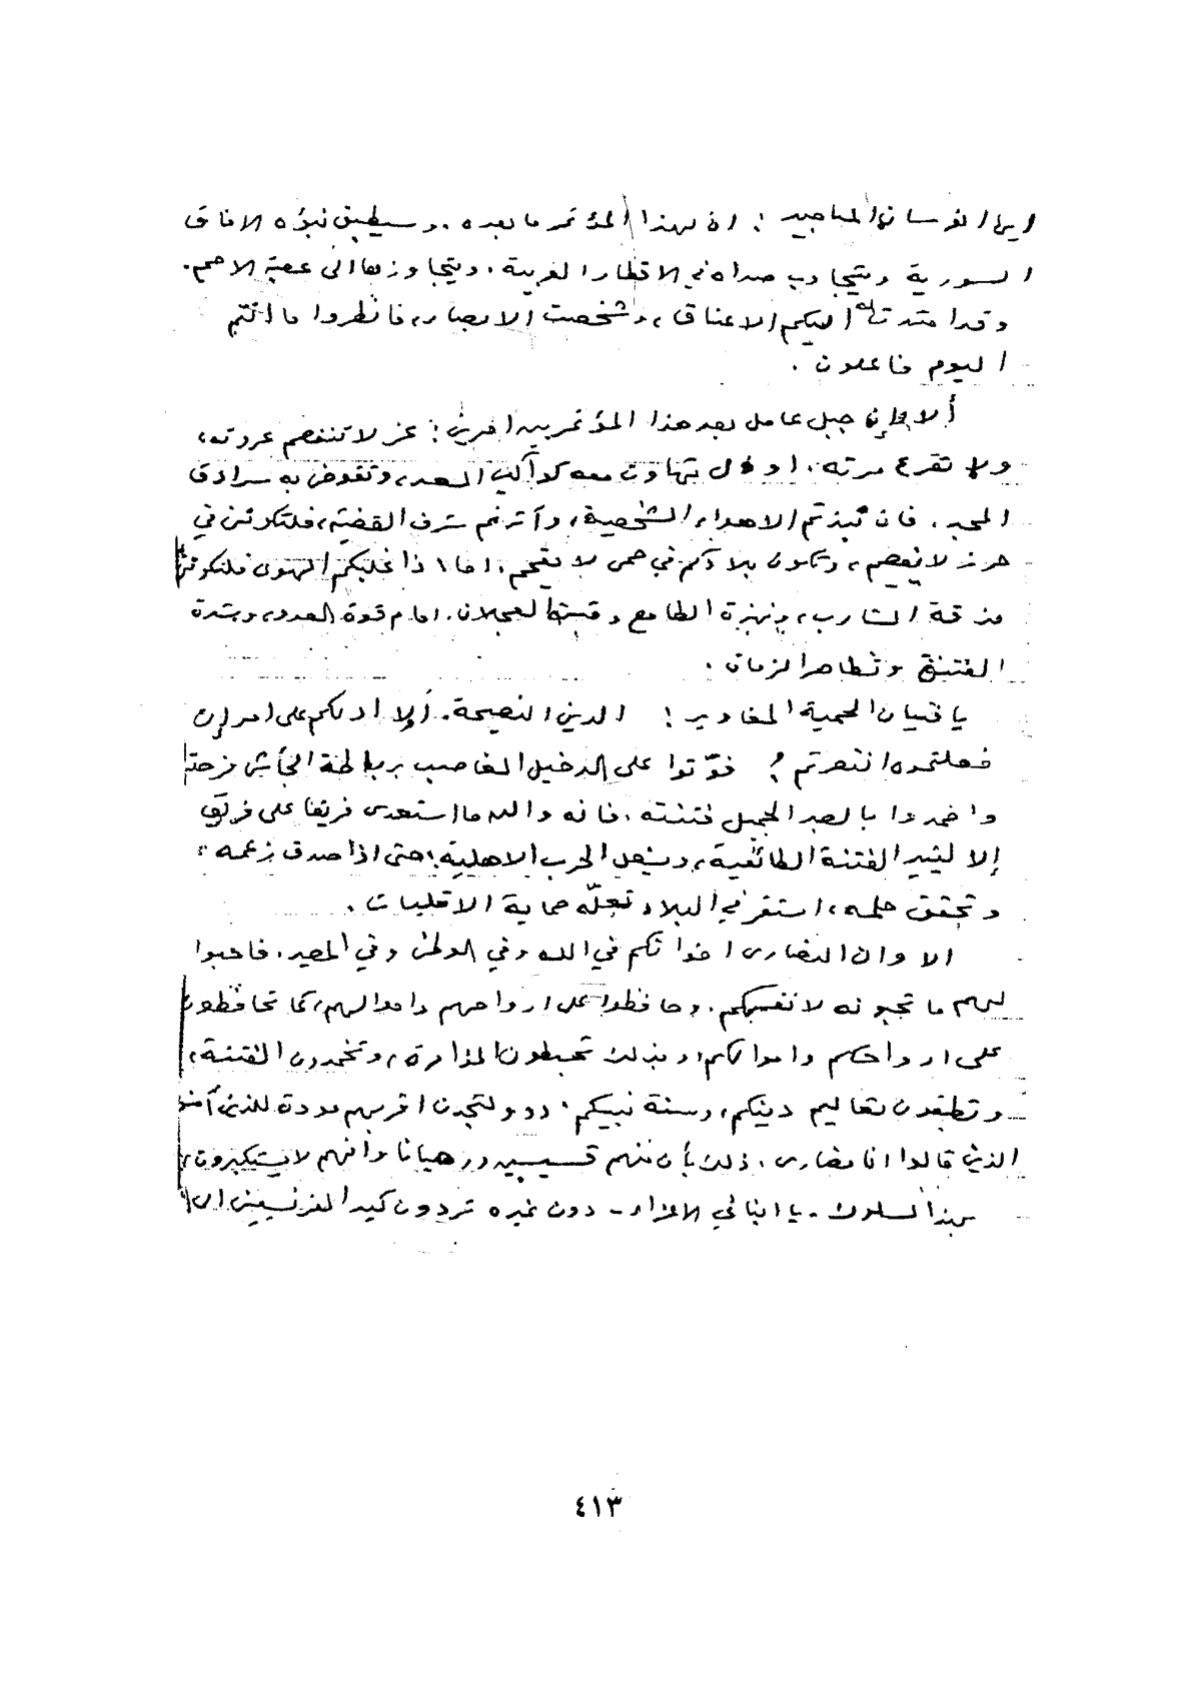 ايها الفرسان المناجيد : ان لهذا المؤتمر ما بعده . وسيطبق نبؤه الافاق
السورية ويتجاوب صداه في الاقطار العربية ، ويتجاوزها الى عصبة الامم .
وقد امتدت اليكم الاعناق ، وشخصت الابصار ، فانظروا ما انتم
اليوم فاعلون .
ألا وإن جبل عامل بعد هذا المؤتمر بين امرين : عز لا تنفصم عروته ،
ولا تقرع مروته ، او ذل تتهاوى معه كواكب السعد ، وتقوض به سرادق
المجد . فان نبذتم الاهواء الشخصية ، وآثرتم شرف القضية ، فلتكونن في
حرز لا يفصم ، وتكون بلادكم في حمى لا يقحم ، اما اذا غلبكم الهوى فلتكونن
مذقة الشارب ، ونهزة الطامع وقبسة العجلان ، امام قوة العدو ، وشدة
الفتنة وتظاهر الزمان .
يا فتيان الحمية المغاوير : الدين النصيحة . ألا ادلكم على امر إن
فعلتموه انتصرتم ؟ فوّتوا على الدخيل الغاصب برباطة الجأش فرصته
واخمدوا بالصبر الجميل فتنته ، فانه والله ما استعدى فريقا على فريق
إلا ليثير الفتنة الطائفية ، ويشعل الحرب الاهلية ، حتى اذا صدق زعمه ،
وتحقق حلمه ، استقر في البلاد تعلّه حماية الاقليات .
الا وان النصارى اخوانكم في الله وفي الوطن وفي المصير ، فاحبوا
لهم ما تحبونه لانفسكم . وحافظوا على ارواحهم واموالهم ، كما تحافظون
على ارواحكم واموالكم ، وبذلك تحبطون المؤامرة ، وتخمدون الفتنة ،
وتطبقون تعاليم دينكم ، وسنة نبيكم . " ولتجدن اقربهم مودة للذين آمنوا
الذين قالوا انا نصارى ، ذلك بأن منهم قسيسين ورهبانا وأنهم لا يستكبرون "
بهذا السلوك - يا ابنائي الاعزاء - دون غيره تردون كيد الفرنسيين الى
٤١٣